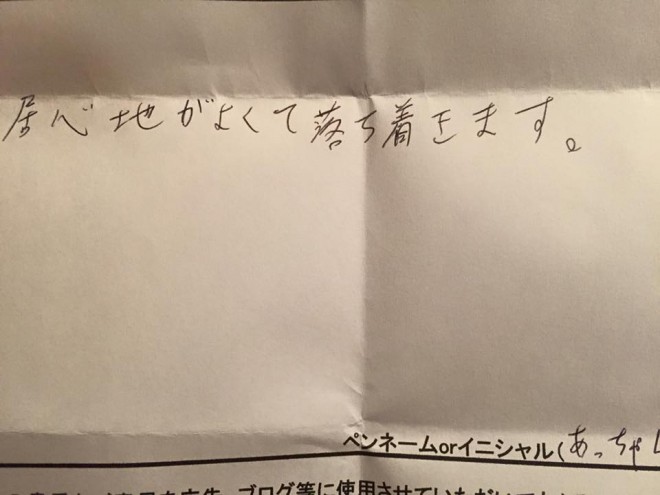 居心地がよくて落ち着きます。
ペンネームorイニシャル(あっちゃ
ブログ等に使用させていただいて